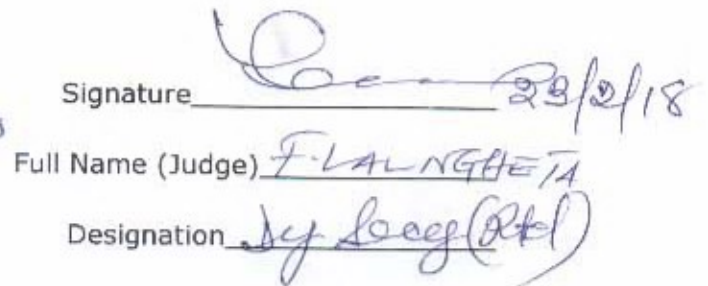 Signature 23/2/18
Full Name (Judge) F. LALNGHETA
Designation Dy Secy (Rtd)